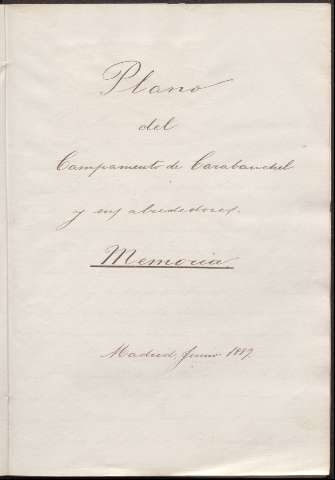 Plano
del
Campamento de Carabanchel
y sus alrededores.
Memoria
Madrid, Junio 1887.